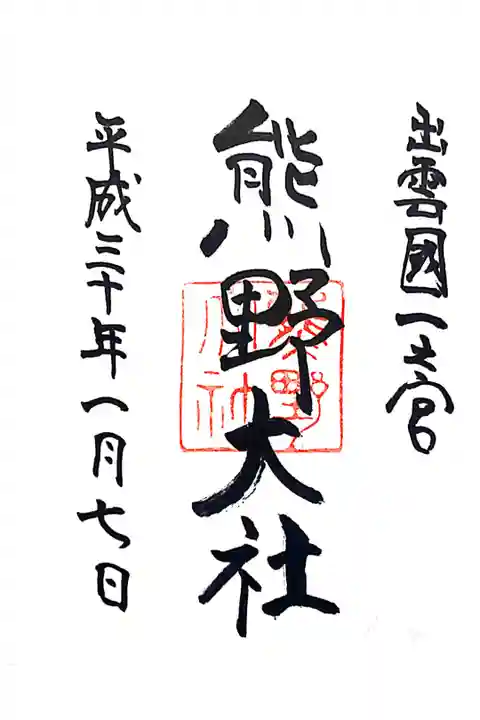 出雲國一之宮
熊野大社
平成三十年一月七日